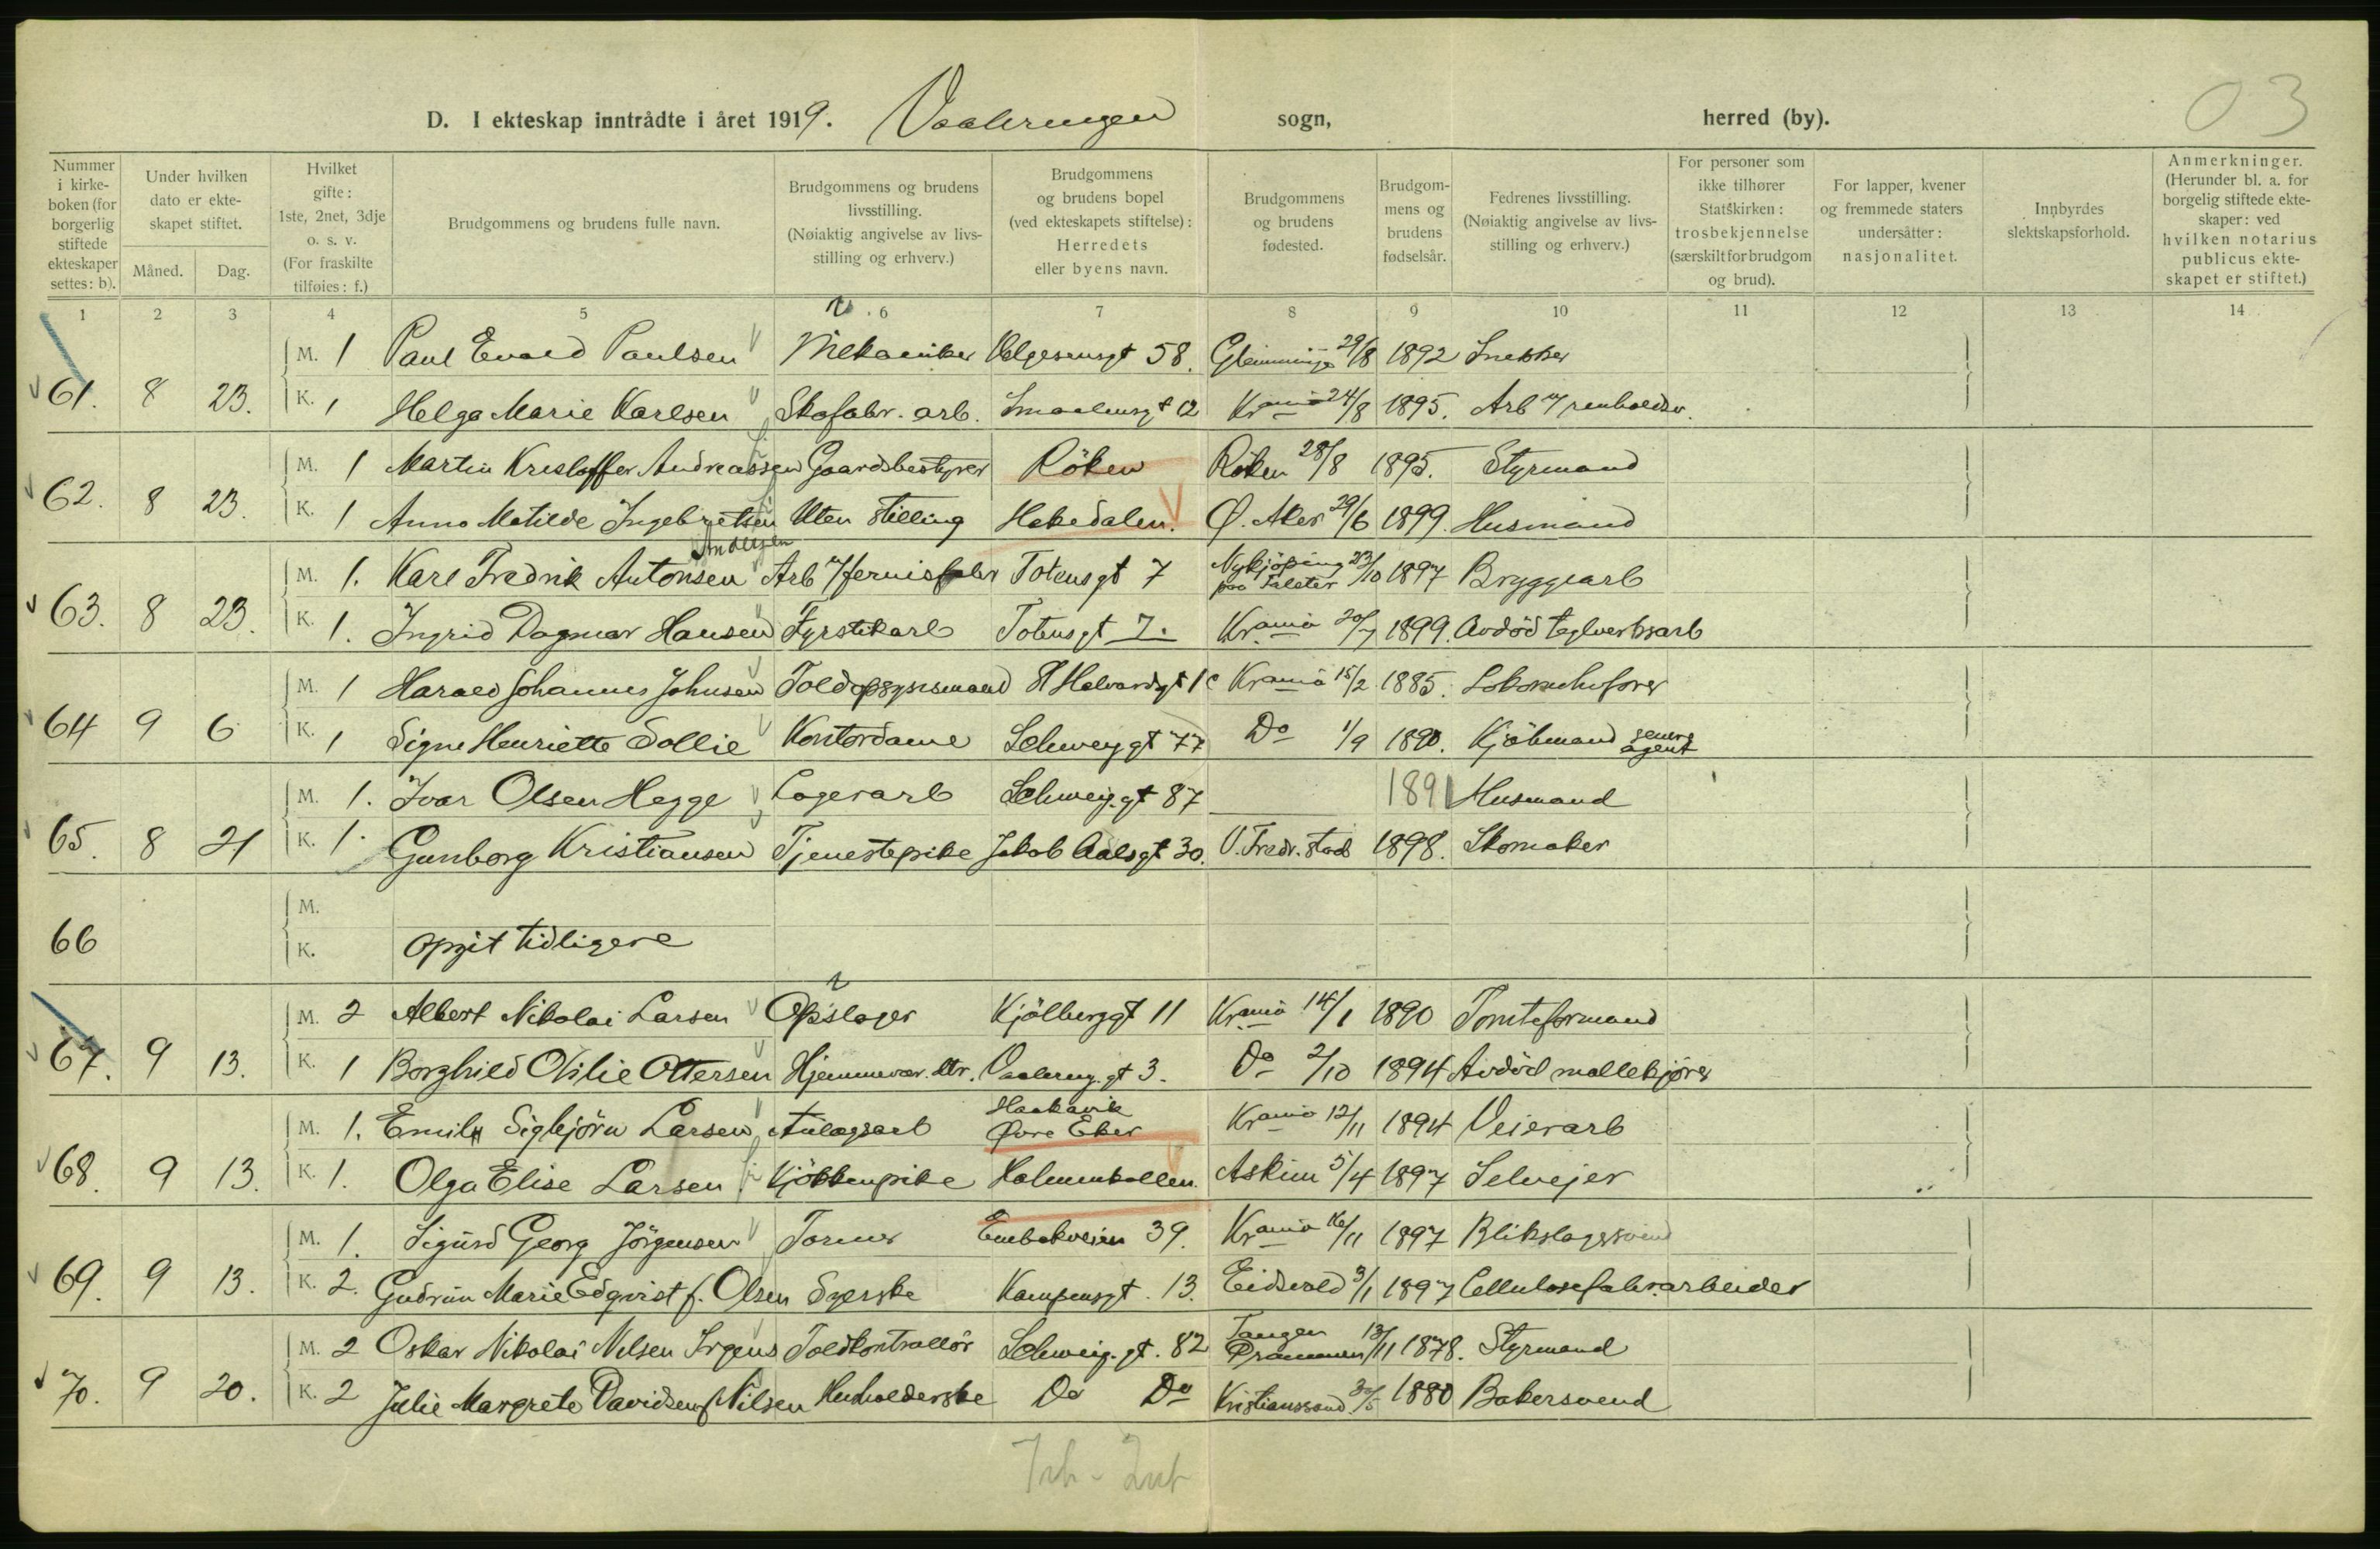 D. I ekteskap inntrådte i året 1919. Vaalerengen sogn, herred (by).
03
Nummer i kirkeboken (for borgerlig stiftede ekteskaper settes: b).
Under hvilken dato er ekteskapet stiftet.
Måned. Dag.
Hvilket gifte: 1ste, 2net, 3dje o. s. v. (For fraskilte tilføies: f.)
Brudgommens og brudens fulle navn.
Brudgommens og brudens livsstilling. (Nøiaktig angivelse av livsstilling og erhverv.)
Brudgommens og brudens bopel (ved ekteskapets stiftelse): Herredets eller byens navn.
Brudgommens og brudens fødested.
Brudgommens og brudens fødselsår.
Fedrenes livsstilling. (Nøiaktig angivelse av livsstilling og erhverv.)
For personer som ikke tilhører Statskirken: trosbekjennelse (særskilt for brudgom og brud).
For lapper, kvener og fremmede staters undersåtter: nasjonalitet.
Innbyrdes slektskapsforhold.
Anmerkninger. (Herunder bl. a. for borgelig stiftede ekteskaper: ved hvilken notarius publicus ekteskapet er stiftet.)
1 2 3 4 5 6 7 8 9 10 11 12 13 14
M. 1 Paul Evald Paulsen Mekaniker 58. 29/8 1892 Snekker
61. 8 23. K. 1 Helga Marie Karlsen Skofabr. arb. Smaalensgt 12 Kr.ania 24/8 1895. Arb v/ renholdsv.
M. 1 Martin Kristoffer Andreassen Gaardsbestyrer Röken Röken 28/8 1895. Styrmand
62. 8 23. K. 1 Anna Matilde Ingebretsen Uten stilling Hakedalen. Ø. Aker 29/6 1899. Husmand
Andersen
M. 1. Karl Fredrik Antonsen Arb v/ fernisfabr Totensgt 7 Nykjöping paa Falster 23/10 1897 Bryggearb
63. 8 23. K. 1. Ingrid Dagmar Hansen Fyrstikarb Totensgt 7. Kr.ania 20/7 1899. Avdöd teglverksarb
M. 1 Harald Johannes Johnsen Toldopsynsmand St Halvardsgt 1c Kr.ania 15/2 1885. Lokomotivförer
64 9 6 K. 1 Signe Henriette Sollie Kontordame Schweiggt 77 Do 1/9 1890. Kjöbmand senere agent
M. 1. Ivar Olsen Hegge Lagerarb Schweig.gt 87 1891 Husmand
65. 8 21 K. 1. Gunborg Kristiansen Tjenestepike Jakob Aalsgt 30. V. Fredr.stad 1898. Skomaker
M.
66 K. Opgit tidligere
M. 2 Albert Nikolai Larsen Opslager Kjölberggt 11 Kr.ania 14/1 1890 Tomteformand
67. 9 13. K. 1 Borghild Otilie Ottersen Hjemmevær. dtr. Vaalereng.gt 3. Do 2/10 1894 Avdöd møllekjører
M. 1. Emil Sigbjörn Larsen Anlægsarb Haakavik Øvre Eker Kr.ania 12/11 1894 Veierarb
68. 9 13. K. 1. Olga Elise Larsen Kjökkenpike Holmenkollen. Askim 5/4 1897 Selvejer
M. 1. Sigurd Georg Jörgensen Former Enebakveien 39. Kr.ania 16/11 1897 Blikslagersvend
69. 9 13. K. 2. Gudrun Marie Edqvist f. Olsen Syerske Kampensgt. 13. Eidsvold 3/1 1897 Cellulosefabr.arbeider
M. 2 Oskar Nikolai Nilsen Irgens Toldkontrollör Schweig.gt. 82 Tangen Drammen 13/11 1878. Styrmand
70. 9 20. K. 2 Julie Margrete Davidsen f Nilsen Husholderske Do Do Kristianssand 30/5 1880 Bakersvend